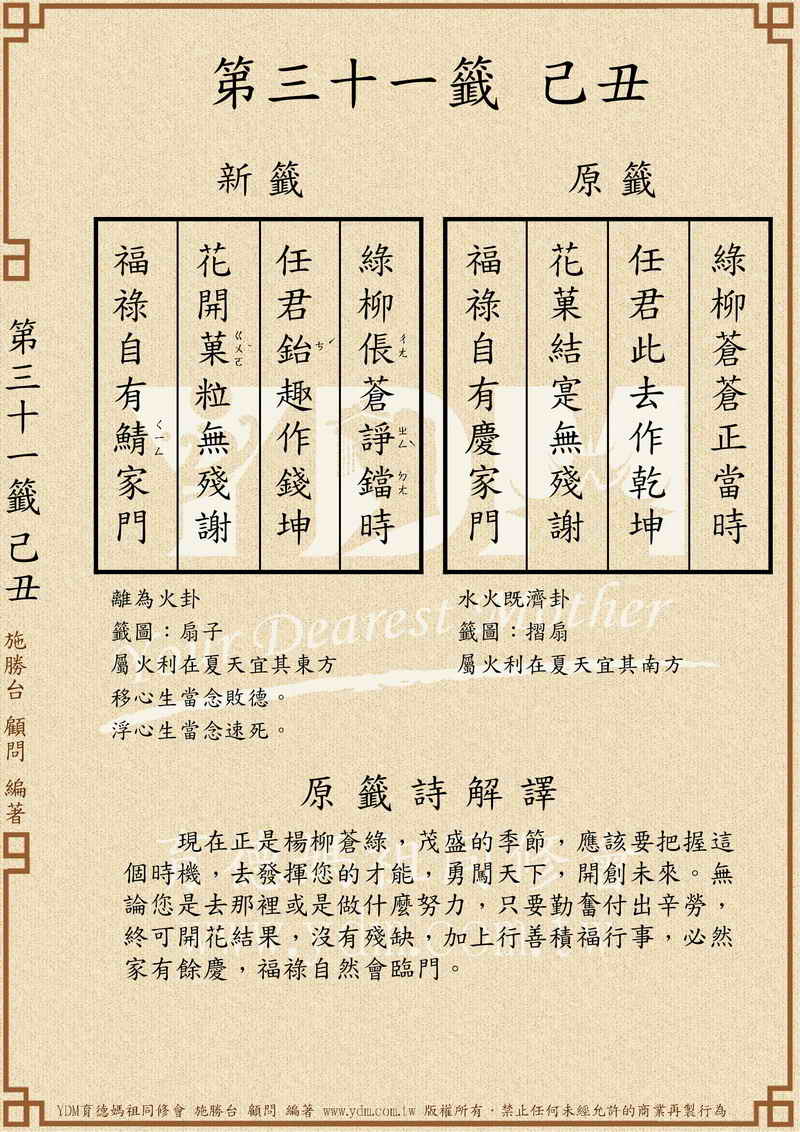 第三十一籤 己丑
原籤
綠柳蒼蒼正當時
任君此去作乾坤
花菓結寔無殘謝
福祿自有慶家門
水火既濟卦
籤圖：摺扇
屬火利在夏天宜其南方
新籤
綠柳倀蒼諍鐺時
ㄔㄤ ㄓㄥˋ ㄉㄤ
任君鈶趣作錢坤
ㄘˊ
花開菓粒無殘謝
ㄍㄨㄛˇ
福祿自有鯖家門
ㄑㄧㄥ
離為火卦
籤圖：扇子
屬火利在夏天宜其東方
移心生當念敗德。
浮心生當念速死。
原籤詩解譯
現在正是楊柳蒼綠，茂盛的季節，應該要把握這
個時機，去發揮您的才能，勇闖天下，開創未來。無
論您是去那裡或是做什麼努力，只要勤奮付出辛勞，
終可開花結果，沒有殘缺，加上行善積福行事，必然
家有餘慶，福祿自然會臨門。
第三十一籤 己丑
施勝台 顧問 編著
YDM
Your Dearest Mother
YDM育德媽祖同修會 施勝台 顧問 編著 www.ydm.com.tw 版權所有．禁止任何未經允許的商業再製行為